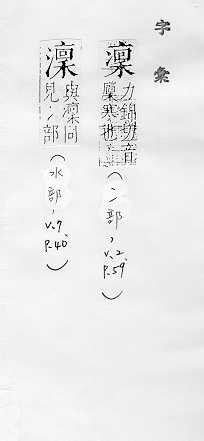 字彙
凜
力錦切音
廩寒也
(冫部,
v.2,
p.59)
澟
與凜同
見冫部
(水部,
v.7,
p.40)